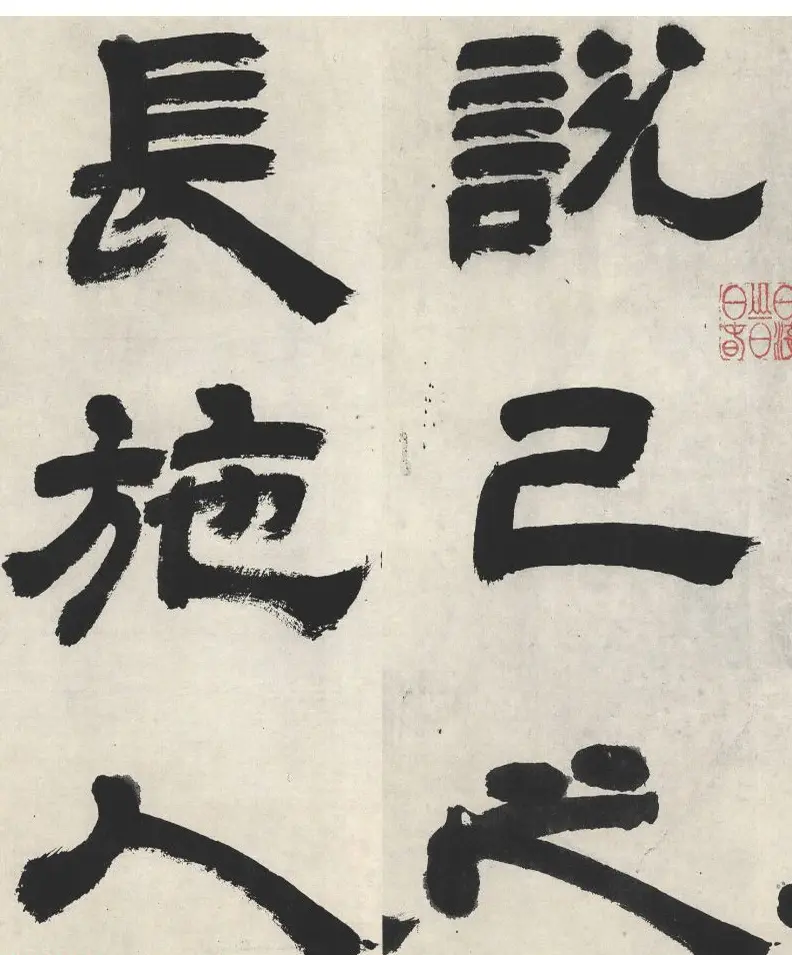 說己之
長施人